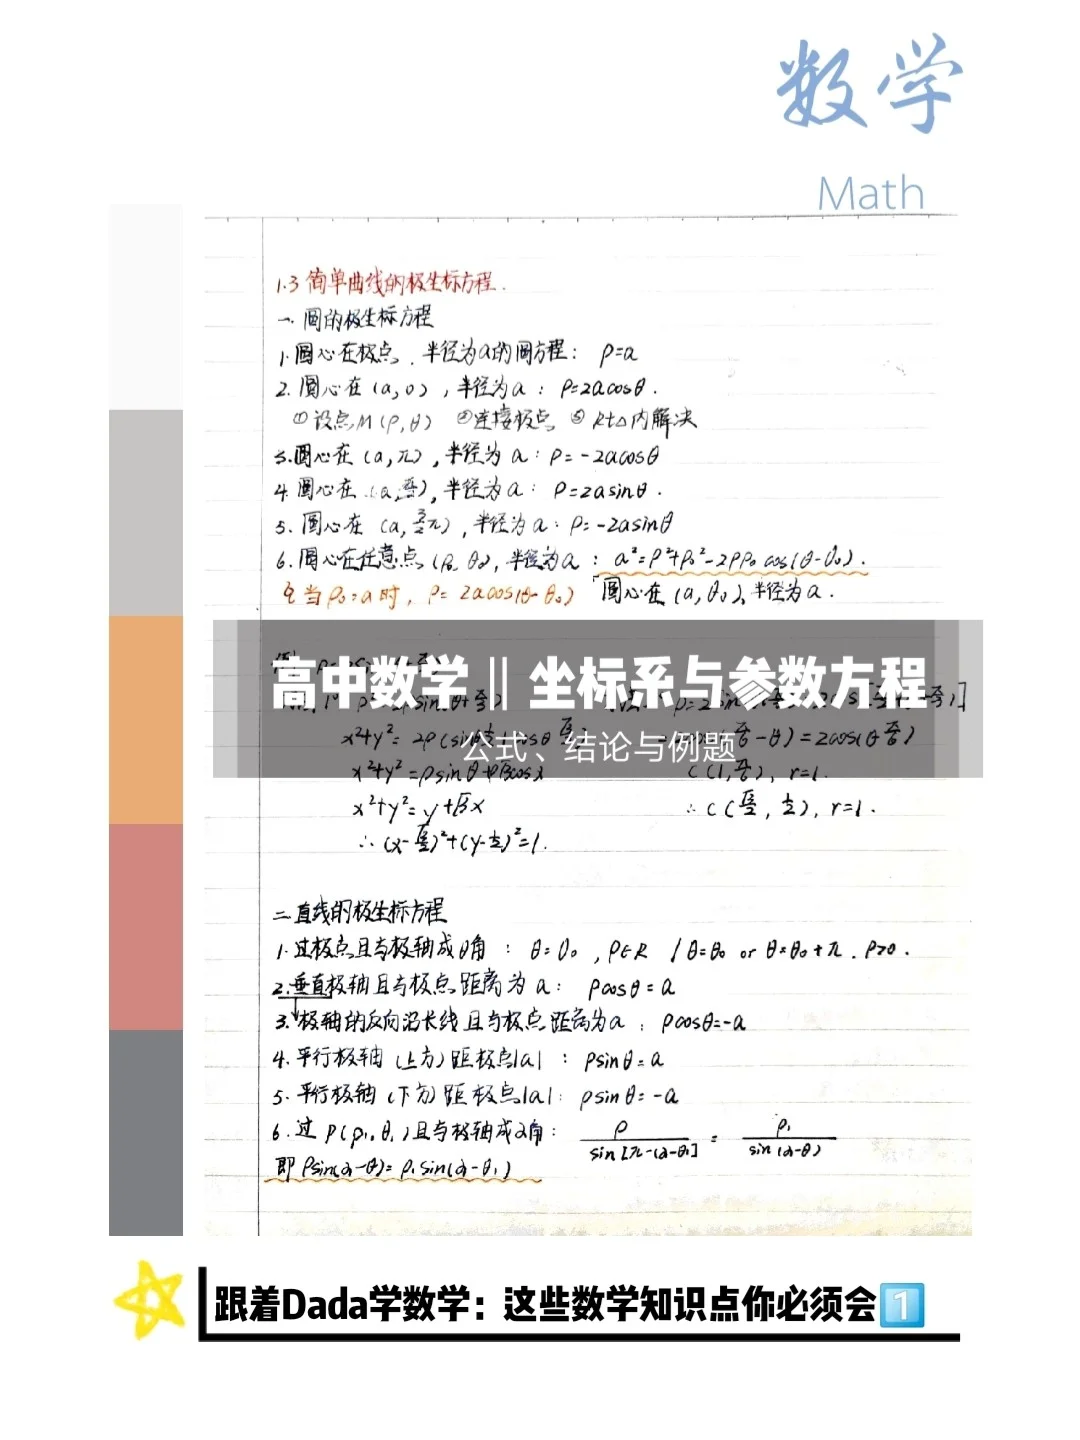 数学
Math
1.3 简单曲线的极坐标方程.
一. 圆的极坐标方程
1. 圆心在极点, 半径为a的圆方程: ρ=a
2. 圆心在 (a, 0), 半径为a: ρ=2acosθ.
①设点M(ρ,θ) ②连接极点 ③Rt△内解决
3. 圆心在 (a, π), 半径为 a: ρ=-2acosθ
4. 圆心在 (a, π/2), 半径为a: ρ=2asinθ.
5. 圆心在 (a, 3/2π), 半径为a: ρ=-2asinθ
6. 圆心在任意点 (ρ₀, θ₀), 半径为a: a²=ρ²+ρ₀²-2ρρ₀cos(θ-θ₀).
当ρ₀=a时, ρ=2acos(θ-θ₀) 圆心在 (a, θ₀), 半径为a.
高中数学 || 坐标系与参数方程
公式、结论与例题
x²+y²=ρsinθ+ρ√3cosθ
C(1, π/6), r=1.
x²+y²=y+√3x
∴ C(√3/2, 1/2), r=1.
∴ (x-√3/2)²+(y-1/2)²=1.
二. 直线的极坐标方程
1. 过极点且与极轴成θ角: θ=θ₀, ρ∈R / θ=θ₀ or θ=θ₀+π. ρ≥0.
2. 垂直极轴且与极点距离为a: ρcosθ=a
3. 极轴的反向沿长线且与极点距离为a: ρcosθ=-a
4. 平行极轴 (上方) 距极点|a|: ρsinθ=a
5. 平行极轴 (下方) 距极点|a|: ρsinθ=-a
6. 过P(ρ₁,θ₁)且与极轴成α角: ρ/sin[π-(α-θ₁)] = ρ₁/sin(α-θ)
即 ρsin(α-θ)=ρ₁sin(α-θ₁)
跟着Dada学数学：这些数学知识点你必须会1️⃣